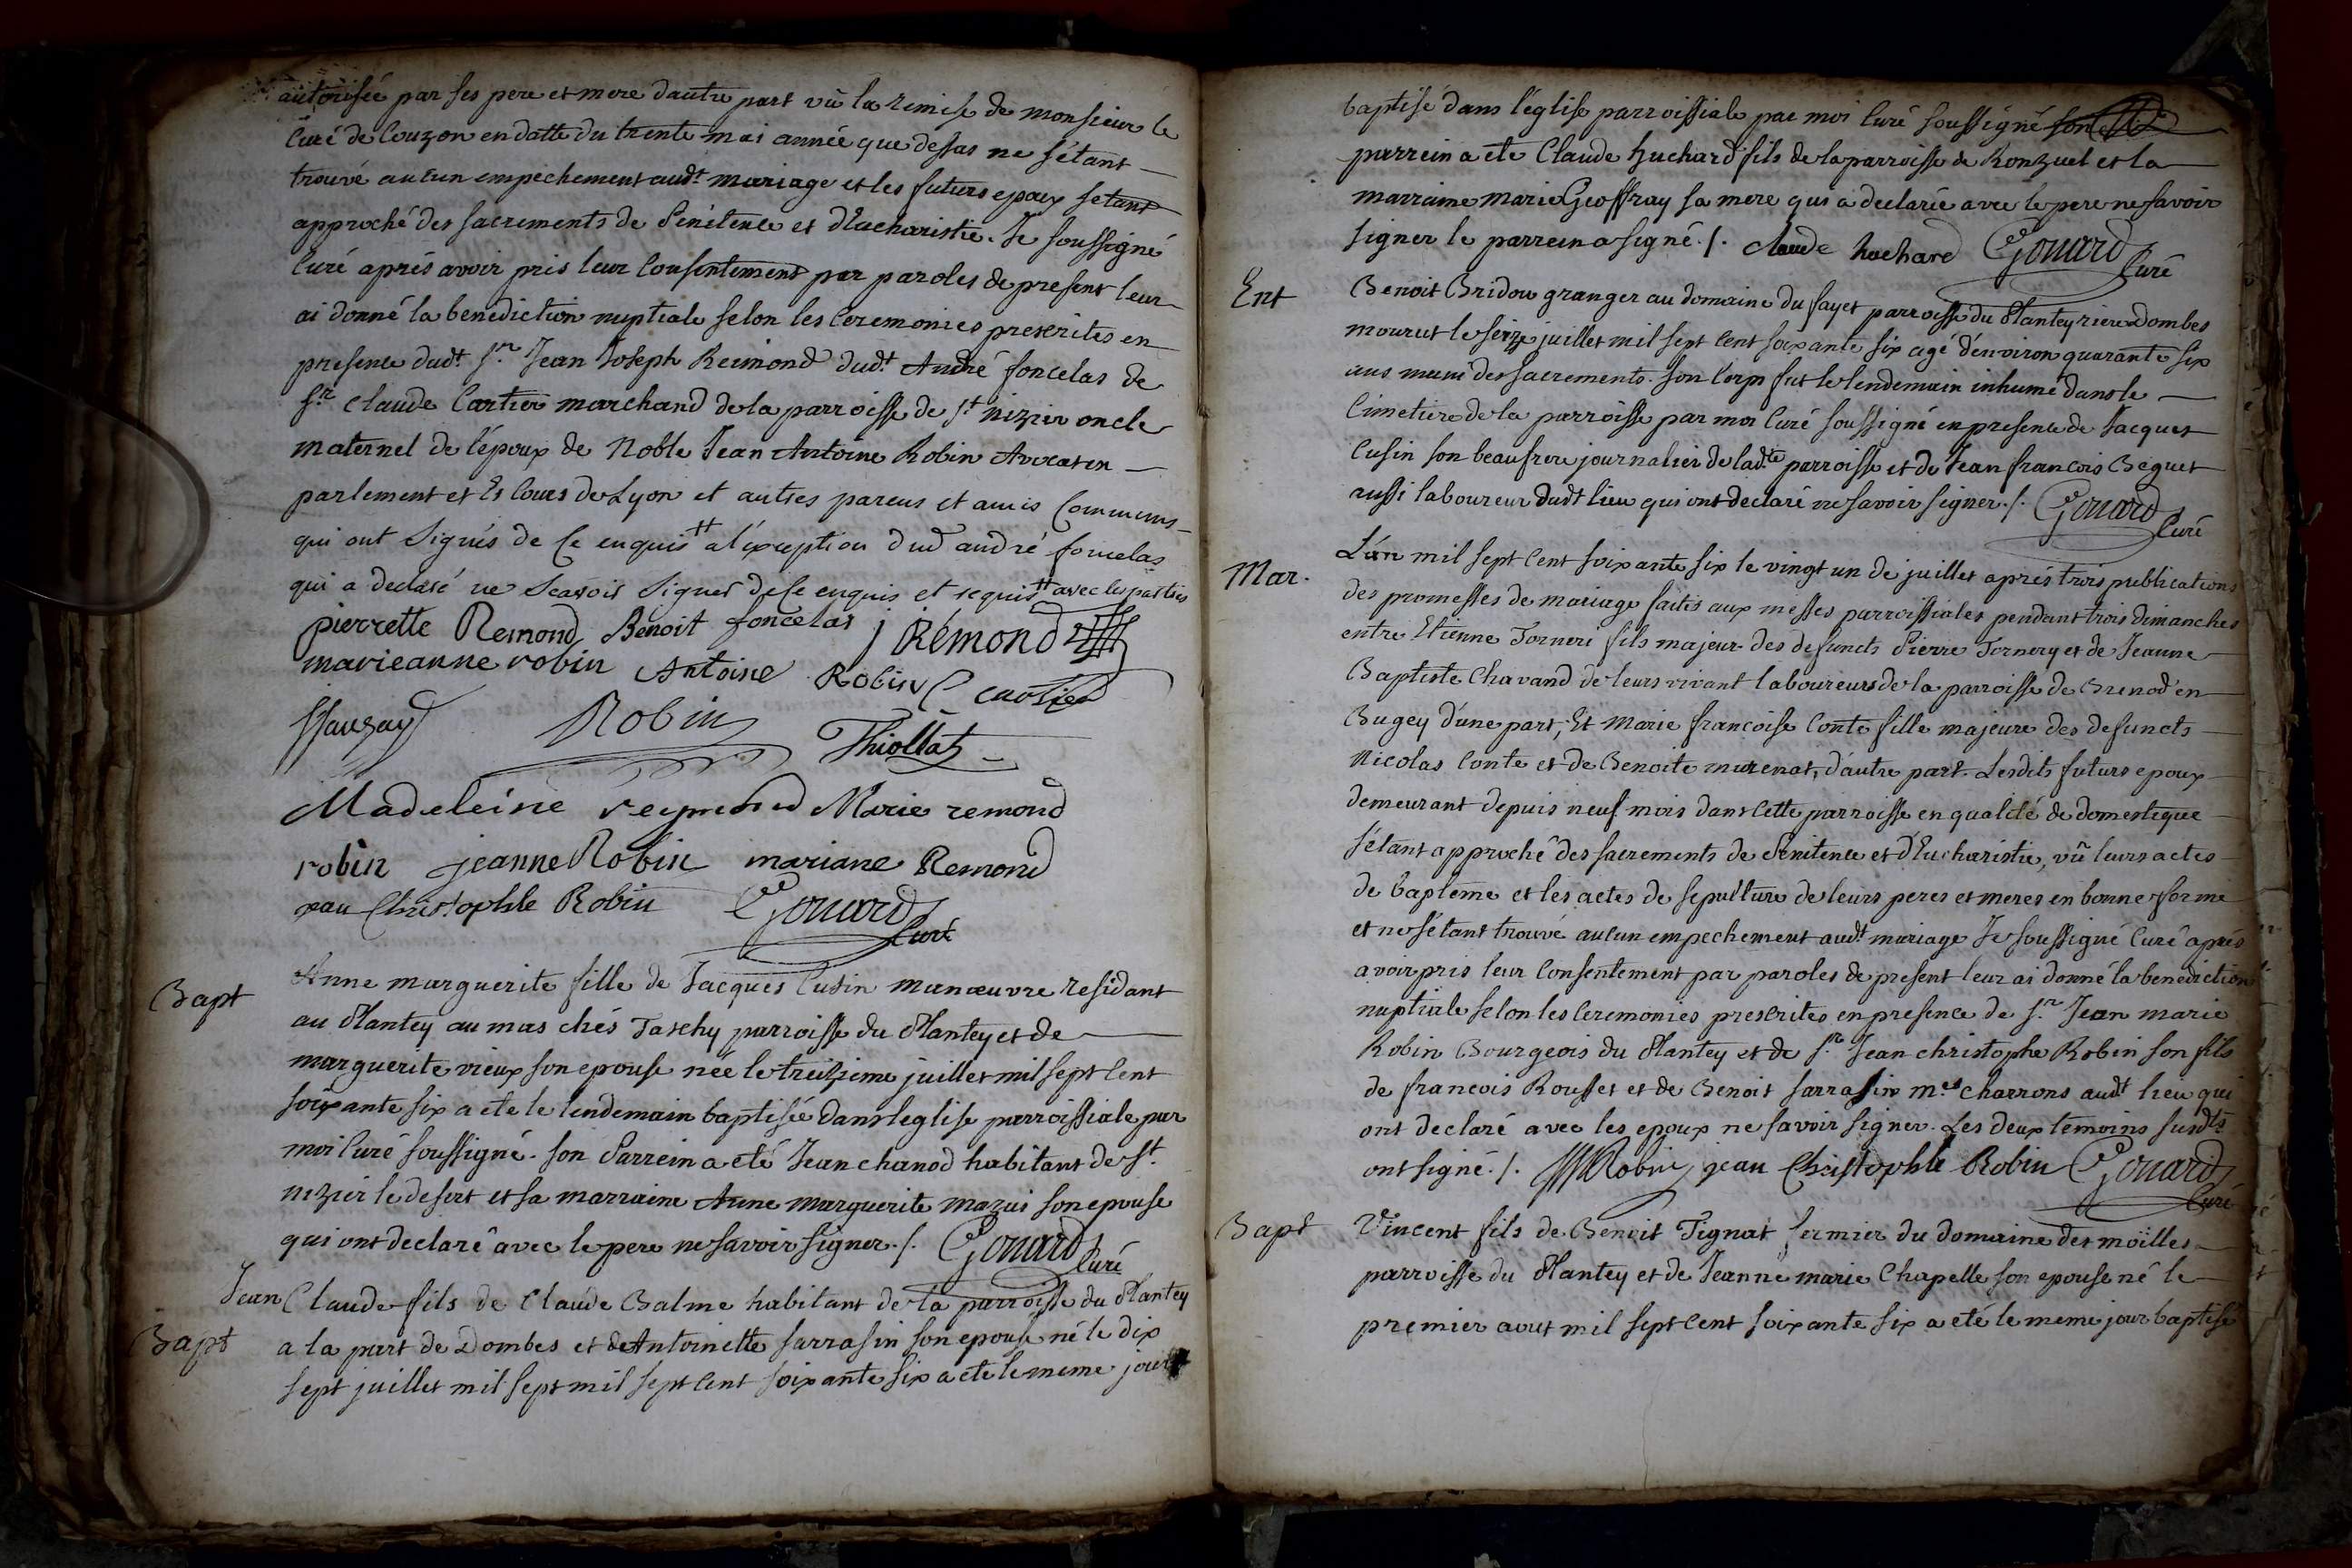 autorisée par ses pere et mere dautre part vû la remise de monsieur le
Curé de Couzon en datte du trente mai année que dessus ne s'étant
trouvé aucun empechement audt mariage et les futurs epoux s'etant
approché des sacrements de Pénitence et d'Eucharistie. Je soussigné
Curé aprés avoir pris leur consentement par paroles de present leur
ai donné la benediction nuptiale selon les Ceremonies prescrites en
presence dudt. Sr. Jean Joseph Reimond dudt. André foncelas de
Sr. Claude Cartier marchand de la parroisse de St nizier oncle
maternel de l'époux de Noble Jean Antoine Robin Avocat en
parlement et Es Cours de Lyon et autres parens et amis Communs
qui ont signés de ce enquis ++ a l'exception dud andré foncelas
qui a declaré ne scavoir signer de ce enquis et requis ++ avec les parties
pierrette Remond Benoit foncelas j Rémond
marieanne robin Antoine Robin C cartier
Robin Thiollat
Madeleine reymond Marie remond
robin jeanne Robin mariane Remond
jean Christophle Robin Gonard Curé
Bapt
Anne marguerite fille de Jacques Cusin manœuvre residant
au Plantey au mas chés Taschy parroisse du Plantey et de
marguerite vieux son epouse née le treizieme juillet mil sept cent
soixante six a ete le lendemain baptisée dans leglise parroissiale par
moi Curé soussigné. son Parrein a eté Jean chanod habitant de St.
nizier le desert et sa marraine Anne marguerite mazui son epouse
qui ont declaré avec le pere ne savoir signer. /. Gonard Curé
Jean Claude fils de Claude Balme habitant de la parroisse du Plantey
Bapt
a la part de Dombes et de Antoinette sarrasin son epouse né le dix
sept juillet mil sept mil sept cent soixante six a ete le meme jour
baptisé dans l'église parroissiale par moi Curé soussigné son
parrein a eté Claude huchard fils de la parroisse de Ronzuel et la
marraine marie Geoffray sa mere qui a declarée avec le pere ne savoir
signer le parrein a signé. /. claude huchard Gonard Curé
Ent
Benoit Bridon granger au domaine du fayet parroisse du Plantey riere Dombes
mourut le seize juillet mil sept cent soixante six agé d'environ quarante six
ans muni des sacrements. son Corps fut le lendemain inhumé dans le
Cimetiere de la parroisse par moi Curé soussigné en presence de Jacques
Cusin son beaufrere journalier de ladte parroisse et de Jean francois Beguet
aussi laboureur dudt lieu qui ont declaré ne savoir signer. /. Gonard Curé
Mar.
L'an mil sept cent soixante six le vingt un de juillet aprés trois publications
des promesses de mariage faites aux messes parroissiales pendant trois dimanches
entre Etienne Torneri fils majeur des defuncts Pierre Tornery et de Jeanne
Baptiste Chavand de leurs vivant laboureurs de la parroisse de Brenod en
Bugey d'une part, Et Marie francoise Conte fille majeure des defuncts
Nicolas Conte et de Benoite murenat, d'autre part. Lesdits futurs epoux
demeurant depuis neuf mois dans cette parroisse en qualité de domestique
s'étant approché des sacrements de Penitence et d'Eucharistie, vû leurs actes
de baptême et les actes de sepulture de leurs peres et meres en bonne forme
et ne s'étant trouvé aucun empechement audt mariage Je soussigné Curé aprés
avoir pris leur consentement par paroles de present leur ai donné la benediction
nuptiale selon les Ceremonies prescrites en presence de Sr. Jean marie
Robin Bourgeois du Plantey et de Sr. Jean christophe Robin son fils
de francois Rousset et de Benoit sarrasin mes. charrons audt lieu qui
ont declaré avec les epoux ne savoir signer. Les deux temoins susdts
ont signé. /. Robin jean Christophle Robin Gonard Curé
Bapt
Vincent fils de Benoit Tignat fermier du domaine des moïlles
parroisse du Plantey et de Jeanne marie Chapelle son epouse né le
premier aout mil sept cent soixante six a eté le meme jour baptisé